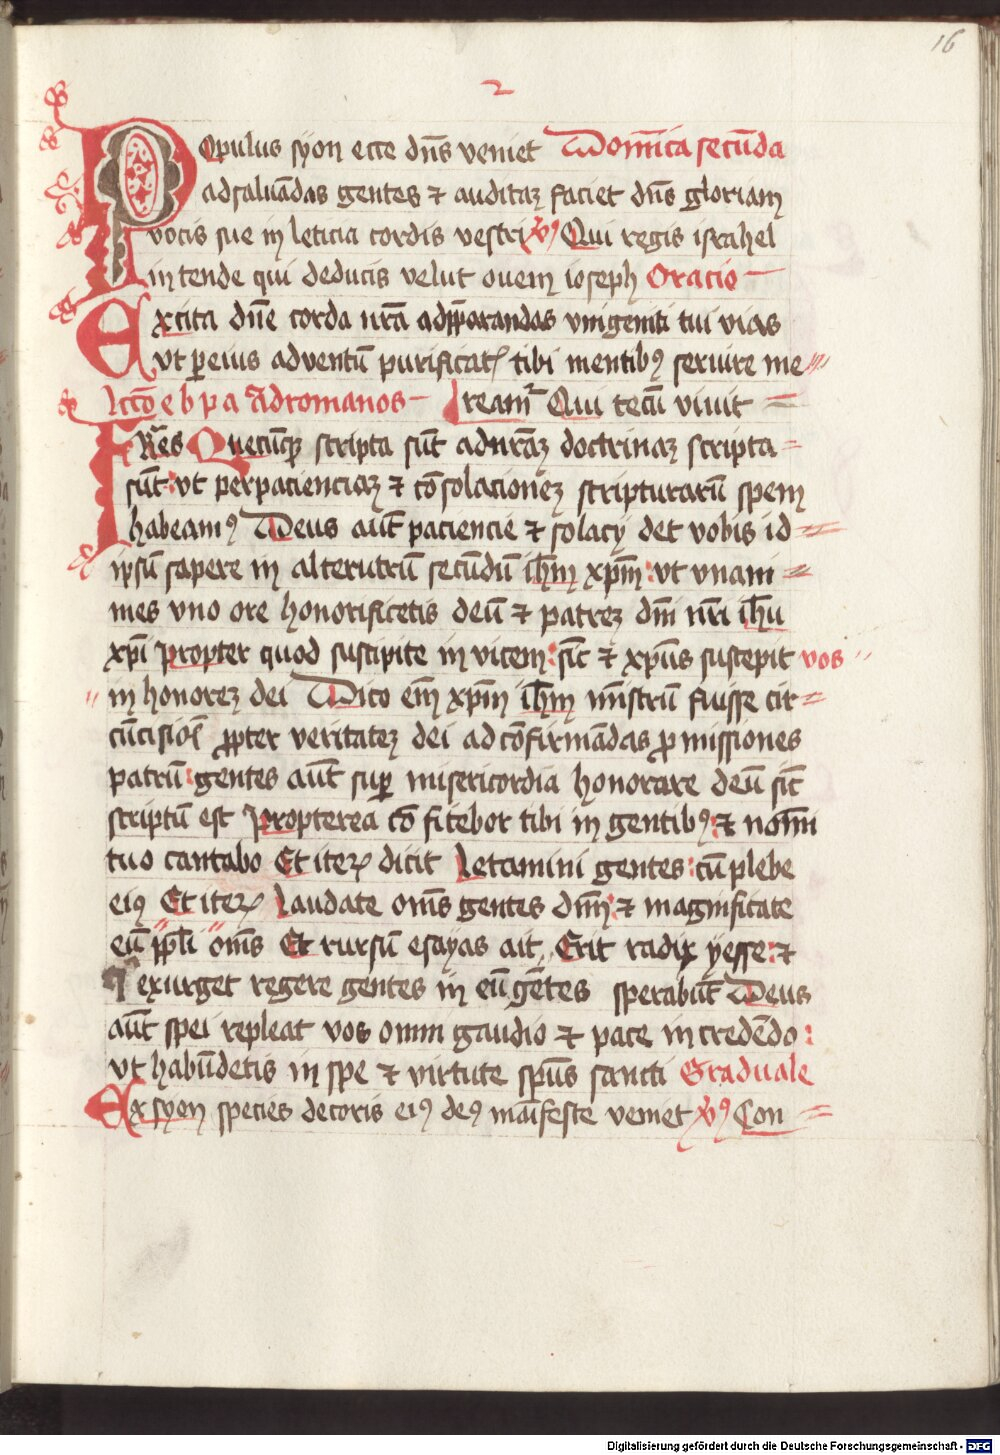 16
2
POpulus syon ecce dn̄s veniet Domīca secūda
ad saluādas gentes ⁊ auditaʒ faciet dn̄s gloriam
vocis sue in leticia cordis vestri v̓ꝰ Qui regis israhel
intende qui deducis velut ouem ioseph Oracio
Excita dn̄e corda nr̄a ad p̄parandas vnigeniti tui vias
vt per eius adventū purificat᷑ tibi mentibꝰ seruire me
Lcc̄o e b p a ad romanos reamur Qui tecū viuit
FRr̄es Quecūqꝫ scripta sūt ad nr̄aʒ doctrinaʒ scripta
sūt vt per pacienciaʒ ⁊ cōsolacioneʒ scripturarū spem
habeamꝰ Deus aūt paciencie ⁊ solacy det vobis id
ipsū sapere in alterutrū secūdū ih̄m xp̄m vt vnani
mes vno ore honorificetis deū ⁊ patreʒ dm̄ nr̄i ih̄u
xp̄i Propter quod suscipite in vicem sic̄ ⁊ xp̄us suscepit vos
in honoreʒ dei Dico em̄ xp̄m ih̄m mīstrū fuisse cir
cūcisiōi ꝓpter veritateʒ dei ad cōfirmādas ꝓmissiones
patrū gentes aūt suꝑ misericordia honorare deū sic̄
scriptū est Propterea cōfitebor tibi in gentibꝰ ⁊ nomī
tuo cantabo Et iteꝝ dicit Letamini gentes cū plebe
eiꝰ Et iteꝝ Laudate om̄s gentes dm̄ ⁊ magnificate
eū pp̄li om̄s Et rursū esayas ait Erit radix yesse ⁊
q̄ exurget regere gentes in eū gētes sperabūt Deus
aūt spei repleat vos omni gaudio ⁊ pace in credēdo
vt habūdetis in spe ⁊ virtute sp̄us sancti Graduale
Ex syon species decoris eiꝰ deꝰ māifeste veniet v̓ꝰ Con
Digitalisierung gefördert durch die Deutsche Forschungsgemeinschaft - DFG